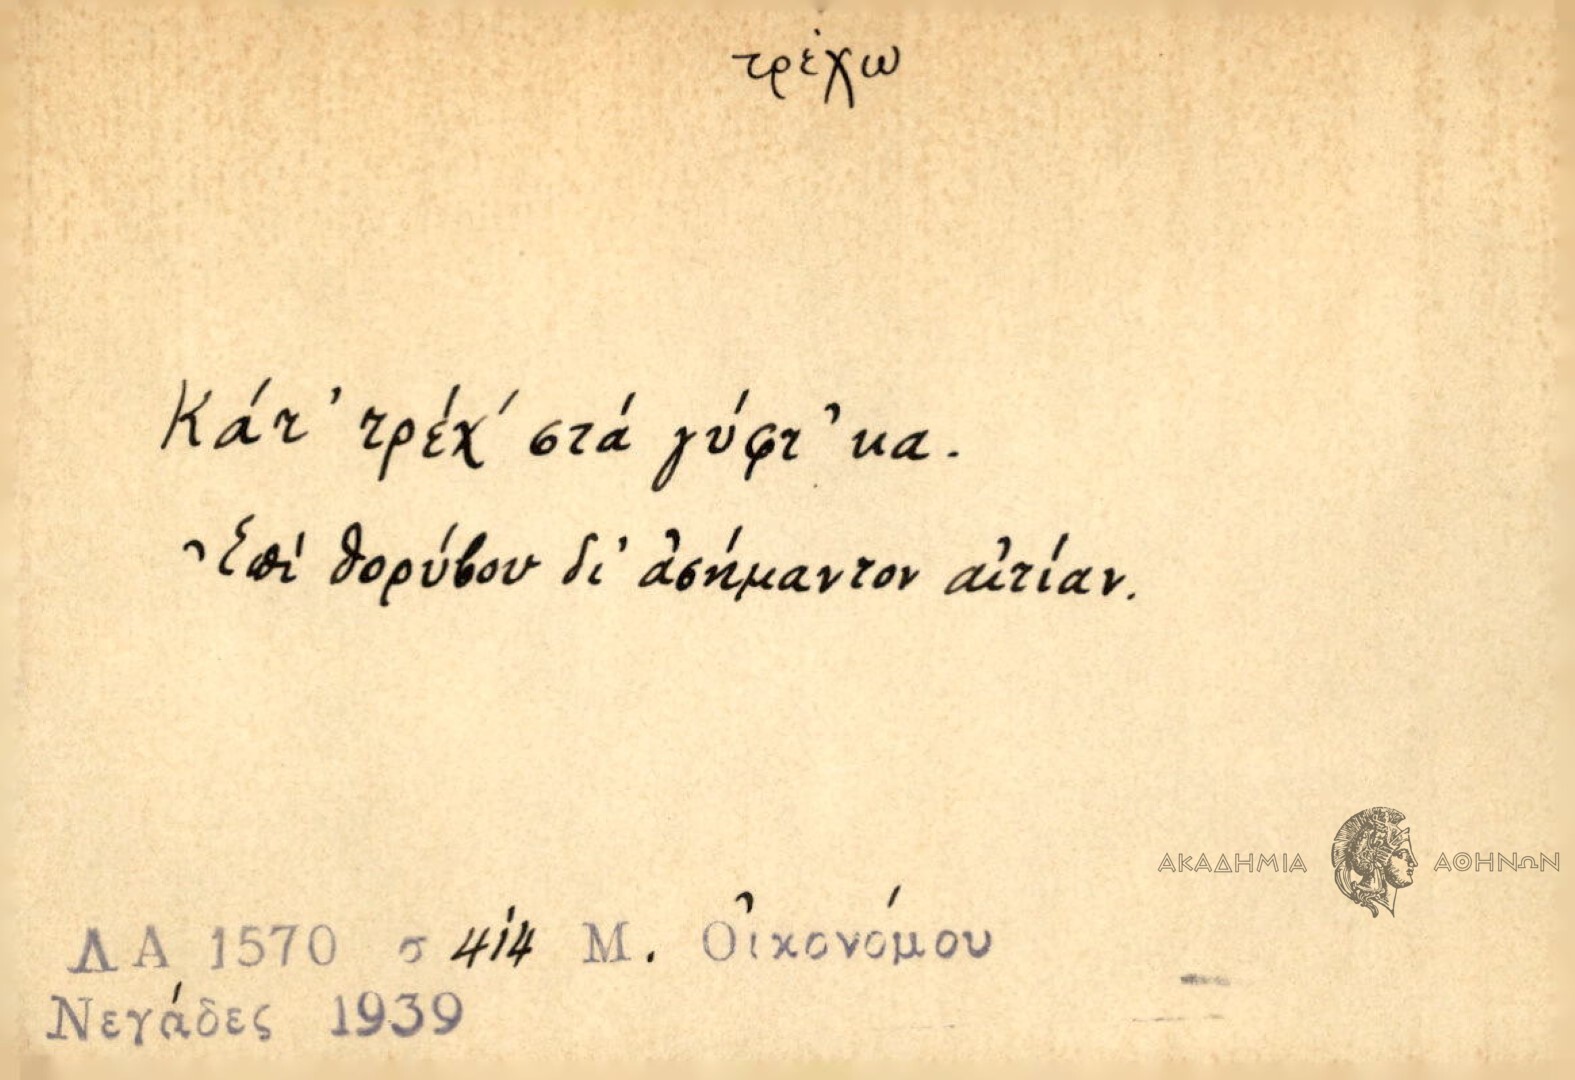 τρέχω
Κάτ' τρέχ' στά γύφτ'κα.
Ἐπί θορύβου δι' ἀσήμαντον αἰτίαν.
ΑΚΑΔΗΜΙΑ ΑΘΗΝΩΝ
ΛΑ 1570 σ 414 Μ. Οἰκονόμου
Νεγάδες 1939